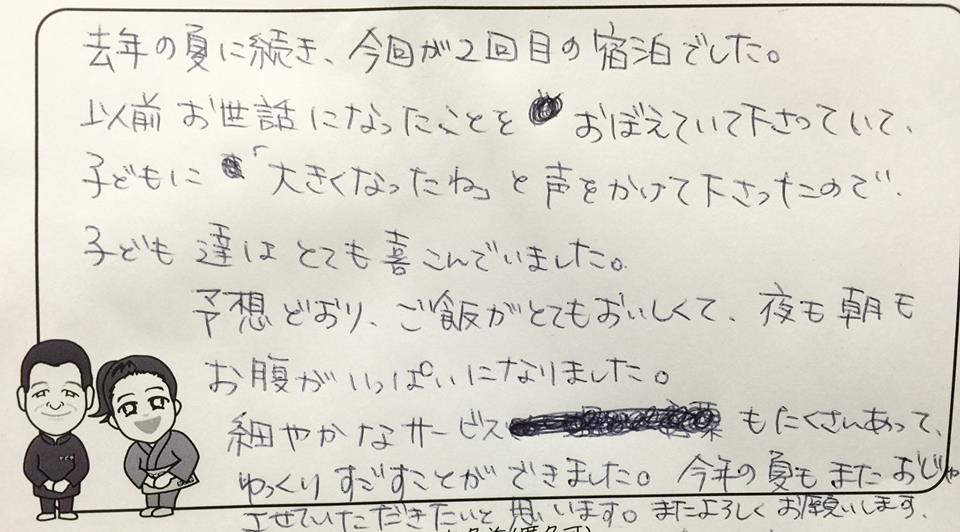 去年の夏に続き、今回が2回目の宿泊でした。
以前お世話になったことを おぼえていて下さっていて、
子どもに「大きくなったね」と声をかけて下さったので、
子ども達はとても喜こんでいました。
予想どおり、ご飯がとてもおいしくて、夜も朝も
お腹がいっぱいになりました。
細やかなサービス もたくさんあって、
ゆっくりすごすことができました。今年の夏もまたおじゃ
させていただきたいと思います。またよろしくお願いします。